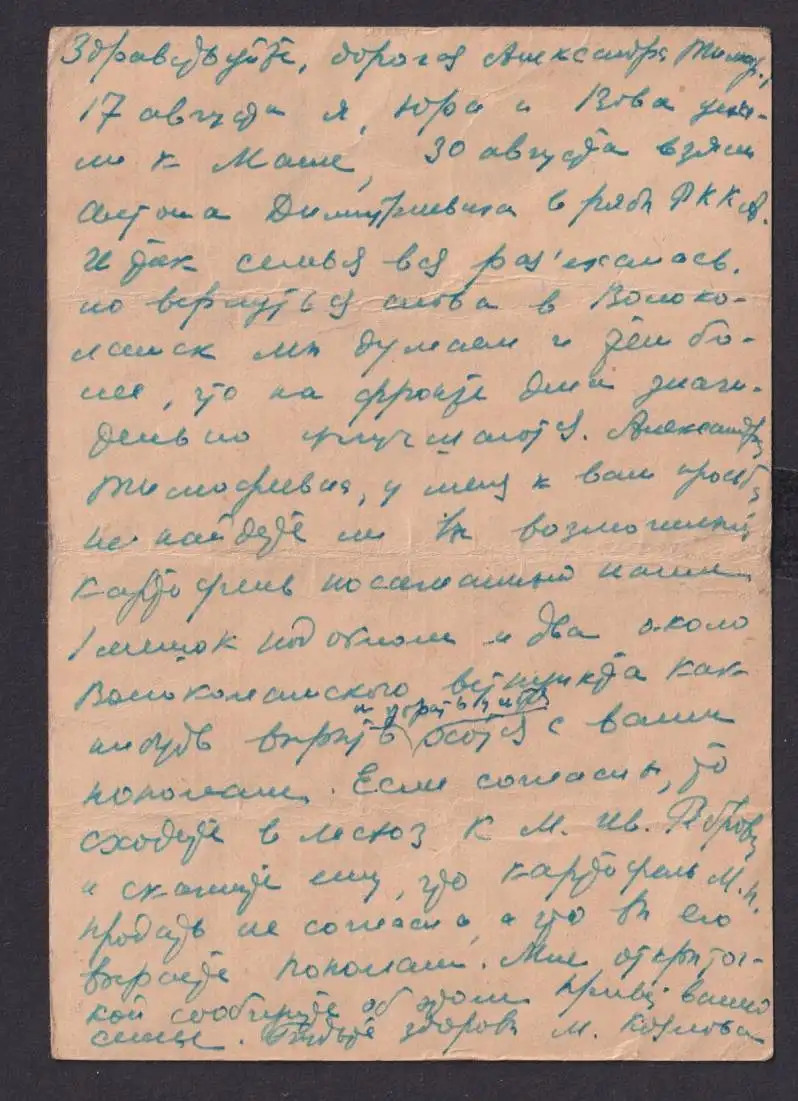 Здравствуйте, дорогая Александра Тимоф.,
17 августа я, Юра и Вова уеха-
ли к Маше, 30 августа взяли
Антона Димитриевича в ряды РККА.
И так семья вся раз'ехалась,
но вернуться снова в Волоко-
ламск мы думаем и тем бо-
лее, что на фронте дела значи-
тельно улучшаются. Александра
Тимофеевна, у меня к вам просьба
не найдете ли вы возможным
картофель посаженный нами
1 мешок под окном и два около
Волоколамского как-
и убрать
нибудь вырыть с вами
пополам. Если согласны, то
сходите в к М. Ив. Петрову
и скажите ему, что картофель М. И.
продать не согласна, а что вы его
выроете пополам. Мне открыт-
кой сообщите об этом привет вашей
семье. Будьте здоровы М. Козлова